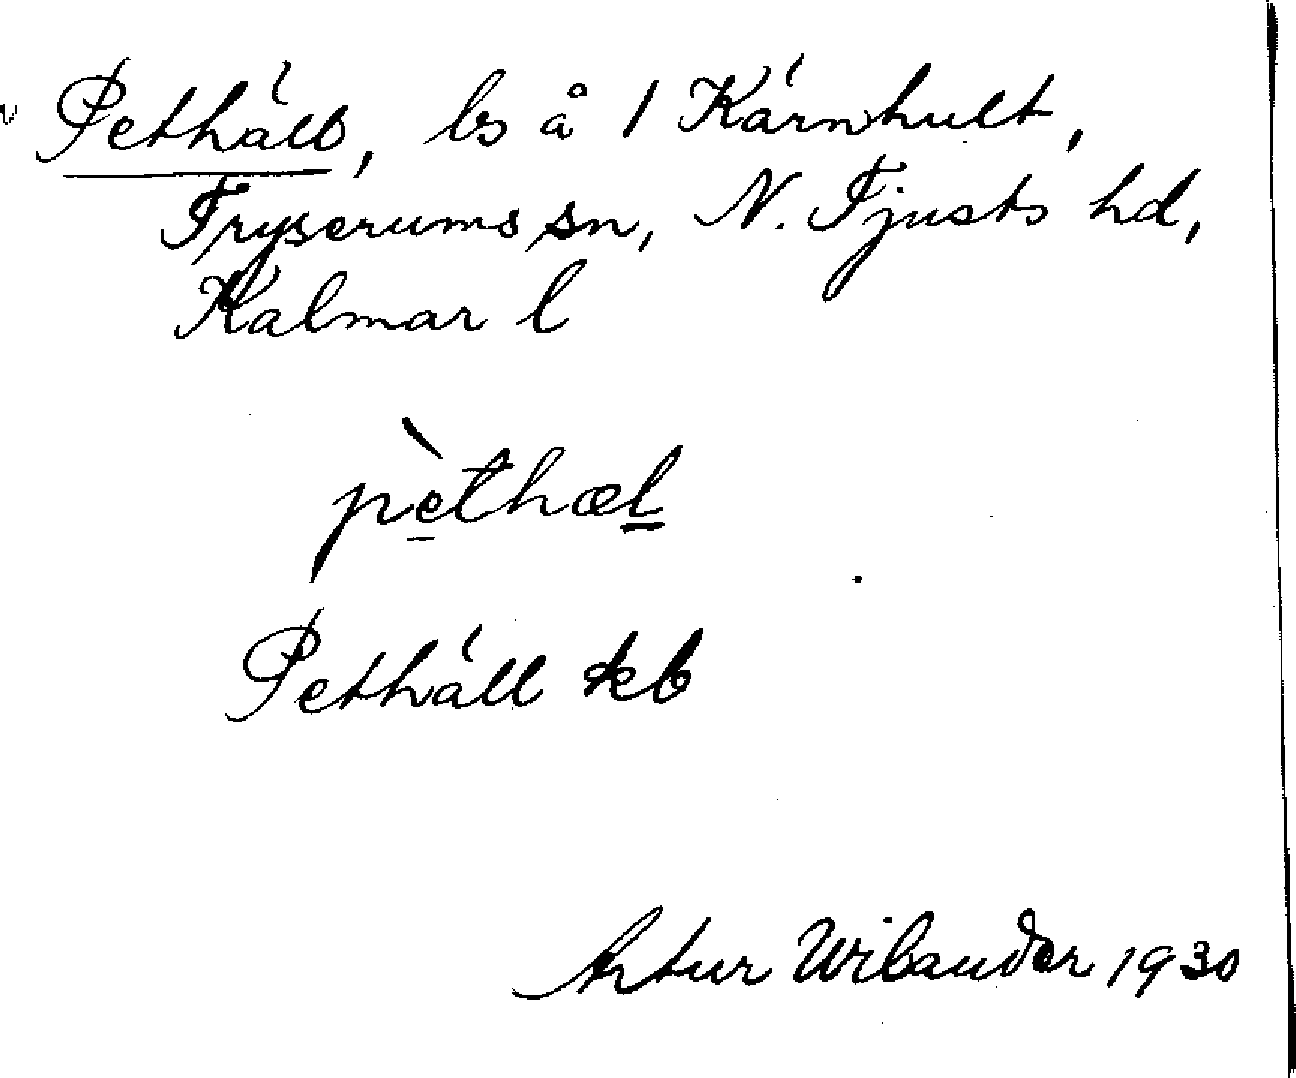 Pethäll, ls å 1 Kärnhult,
Tryserums sn, N. Tjusts hd,
Kalmar l
pèthæl
Pethäll kb
Artur Wilander 1930